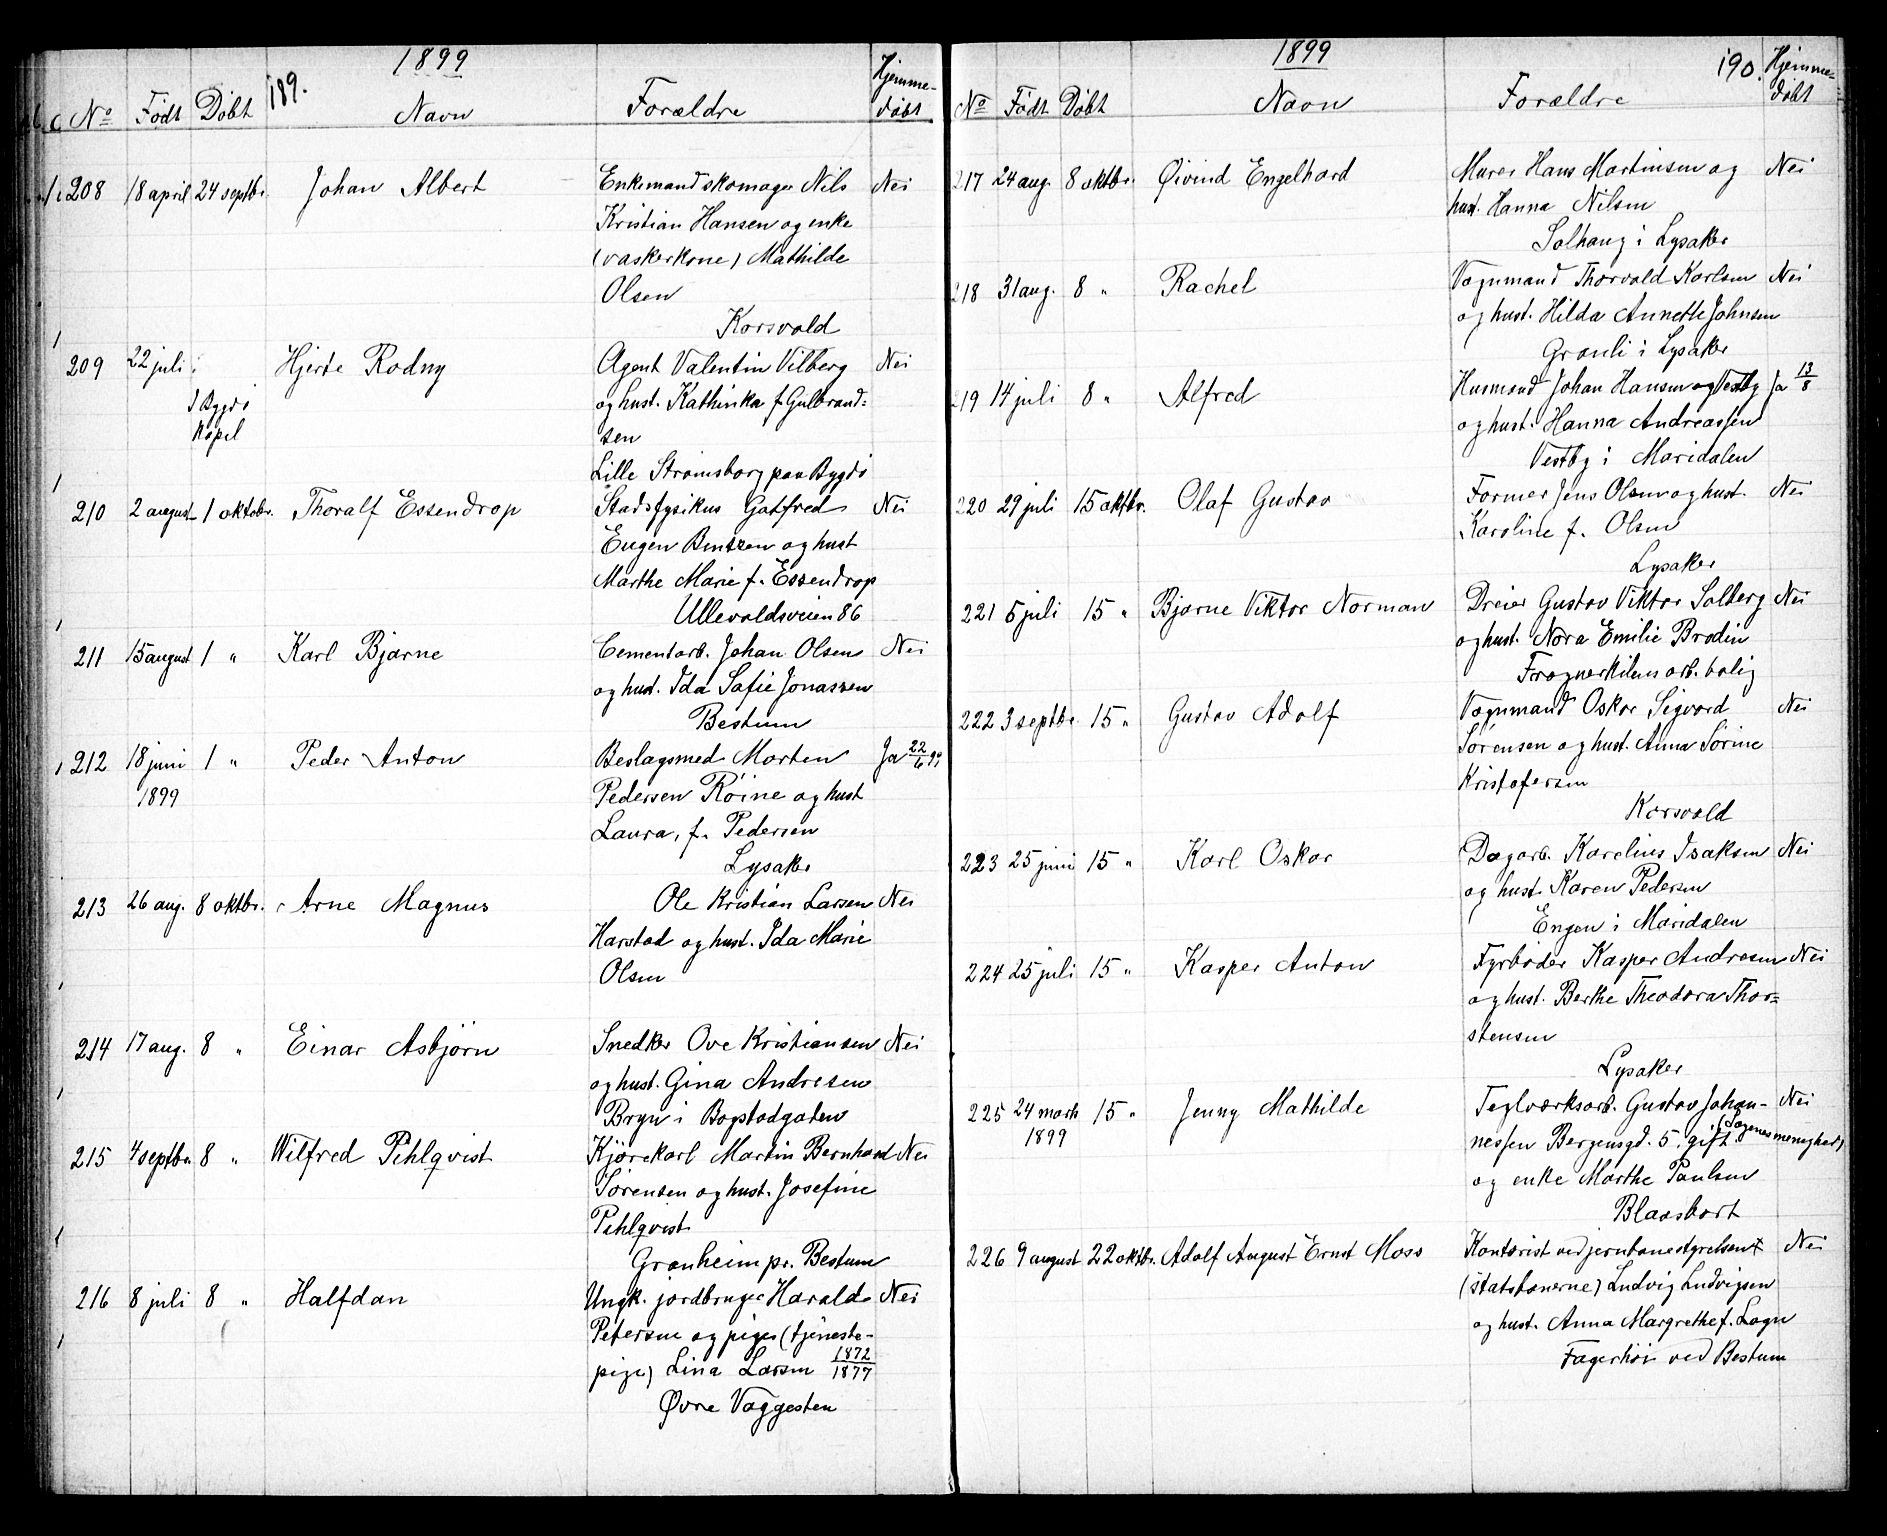 1899
189.
No Født Døbt Navn Forældre Hjemme-
døbt
208 18 april 24 septbr. Johan Albert Enkemand skomager Nils Nei
Kristian Hansen og enke
(vaskerkone) Mathilde
Olsen
Korsvold
209 22 juli Hjerte Rodny Agent Valentin Vilberg Nei
I Bygdø
Kapel
og hust. Kathinka f. Gulbrand=
sen
Lille Strømsborg paa Bygdø
210 2 august 1 oktobr. Thoralf Essendrop Stadsfysikus Gotfred Nei
Eugen Bentzen og hust
Marthe Marie f. Essendrop
Ullevoldsveien 86
211 15 august 1 " Karl Bjarne Cementarb. Johan Olsen Nei
og hust. Ida Sofie Jonassen
Bestum
212 18 juni 1 " Peder Anton Beslagsmed Morten Ja 22/6 99
1899 Pedersen Röine og hust
Laura, f. Pedersen
Lysaker
213 26 aug. 8 oktbr. Arne Magnus Ole Kristian Larsen Nei
Harstad og hust. Ida Marie
Olsen
214 17 aug. 8 " Einar Asbjørn Snedker Ove Kristiansen Nei
og hust. Gina Andresen
Bryn i Bogstadgaten
215 4 septbr 8 " Wilfred Pihlqvist Kjørekarl Martin Bernhard Nei
Sørensen og hust. Josefine
Pihlqvist
Granheim pr. Bestum
216 8 juli 8 " Halfdan Ungk. jordbruger Harald Nei
Petersen og pige (tjeneste-
pige) Lina Larsen 1872/1877
Øvre Vaggesten
1899
190.
No Født Døbt Navn Forældre Hjemme-
døbt
217 24 aug. 8 oktbr. Øivind Engelhard Murer Hans Martinsen og Nei
hust. Hanna Nilsen
Solhaug i Lysaker
218 31 aug. 8 " Rachel Vognmand Thorvald Karlsen Nei
og hust. Hilda Annette Johnsen
Granli i Lysaker
219 14 juli 8 " Alfred Husmand Johan Hansen og Vestby Ja 13/8
og hust. Hanna Andreassen
Vestby i Maridalen
220 29 juli 15 oktbr. Olaf Gustav Former Jens Olsen og hust. Nei
Karoline f. Olsen
Lysaker
221 5 juli 15 " Bjarne Viktor Norman Dreier Gustav Viktor Solberg Nei
og hust. Nora Emilie Brodin
Frognerkilens arb. bolig
222 3 septbr. 15 " Gustav Adolf Vognmand Oskar Sigvard Nei
Sørensen og hust. Anna Sørine
Kristofersen
Korsvold
223 25 juni 15 " Karl Oskar Dagarb. Karelius Isaksen Nei
og hust. Karen Pedersen
Engen i Maridalen
224 25 juli 15 " Kasper Anton Fyrbøder Kasper Andresen Nei
og hust. Berthe Theodora Thor=
stensen
Lysaker
225 24 marts 15 " Jenny Mathilde Teglværksarb. Gustav Johan- Nei
1899 nessen Bergensgd. 5, gift (Sagenes menighed)
og enke Marthe Paulsen
Blaasbort
226 9 august 22 oktbr. Adolf August Ernst Moss Kontorist ved jernbanestyrelsen Nei
(statsbanerne) Ludvig Ludvigsen
og hust. Anna Margrethe f. Lagn
Fagerhøi ved Bestum